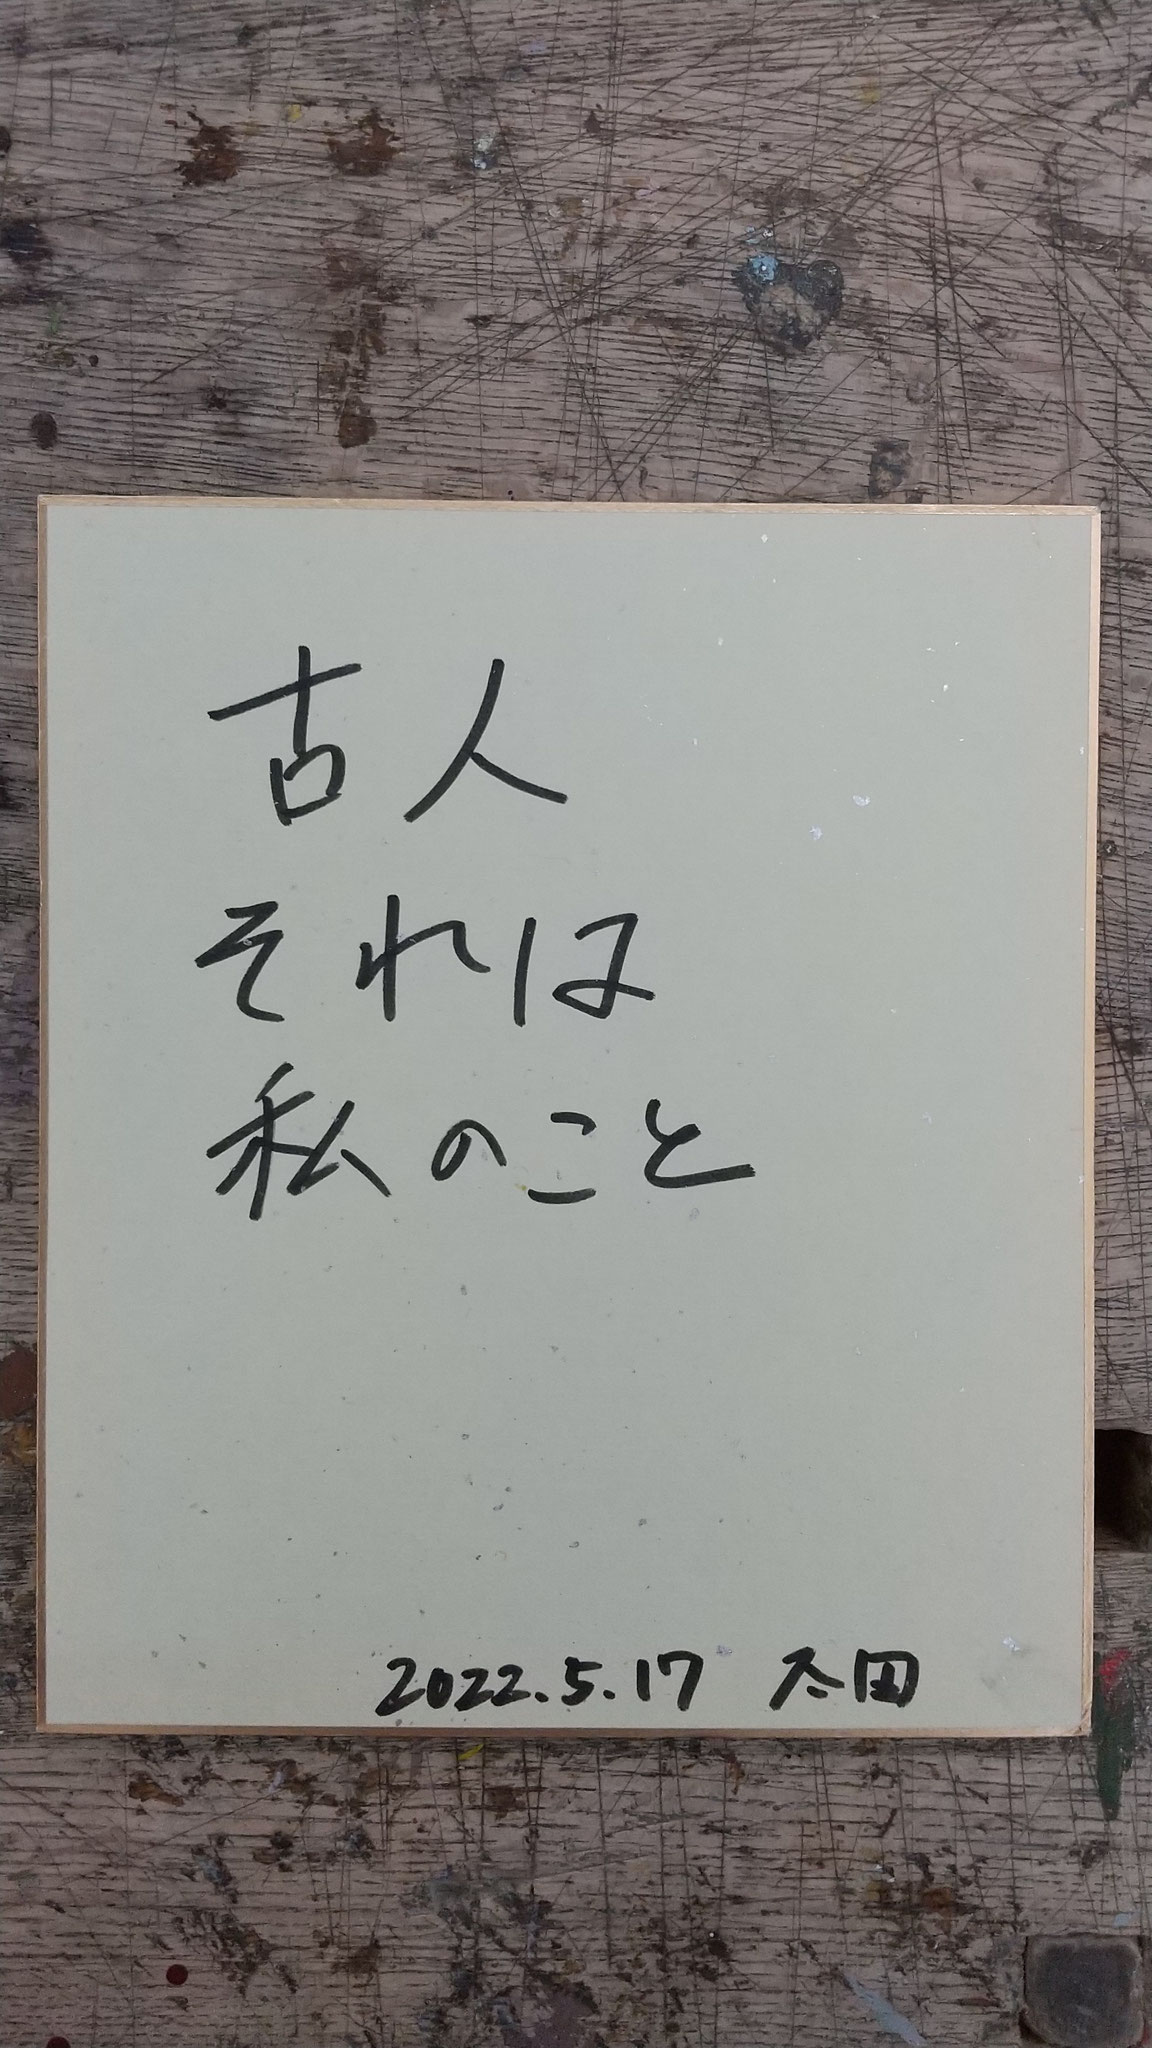 古人
それは
私のこと
2022.5.17 太田